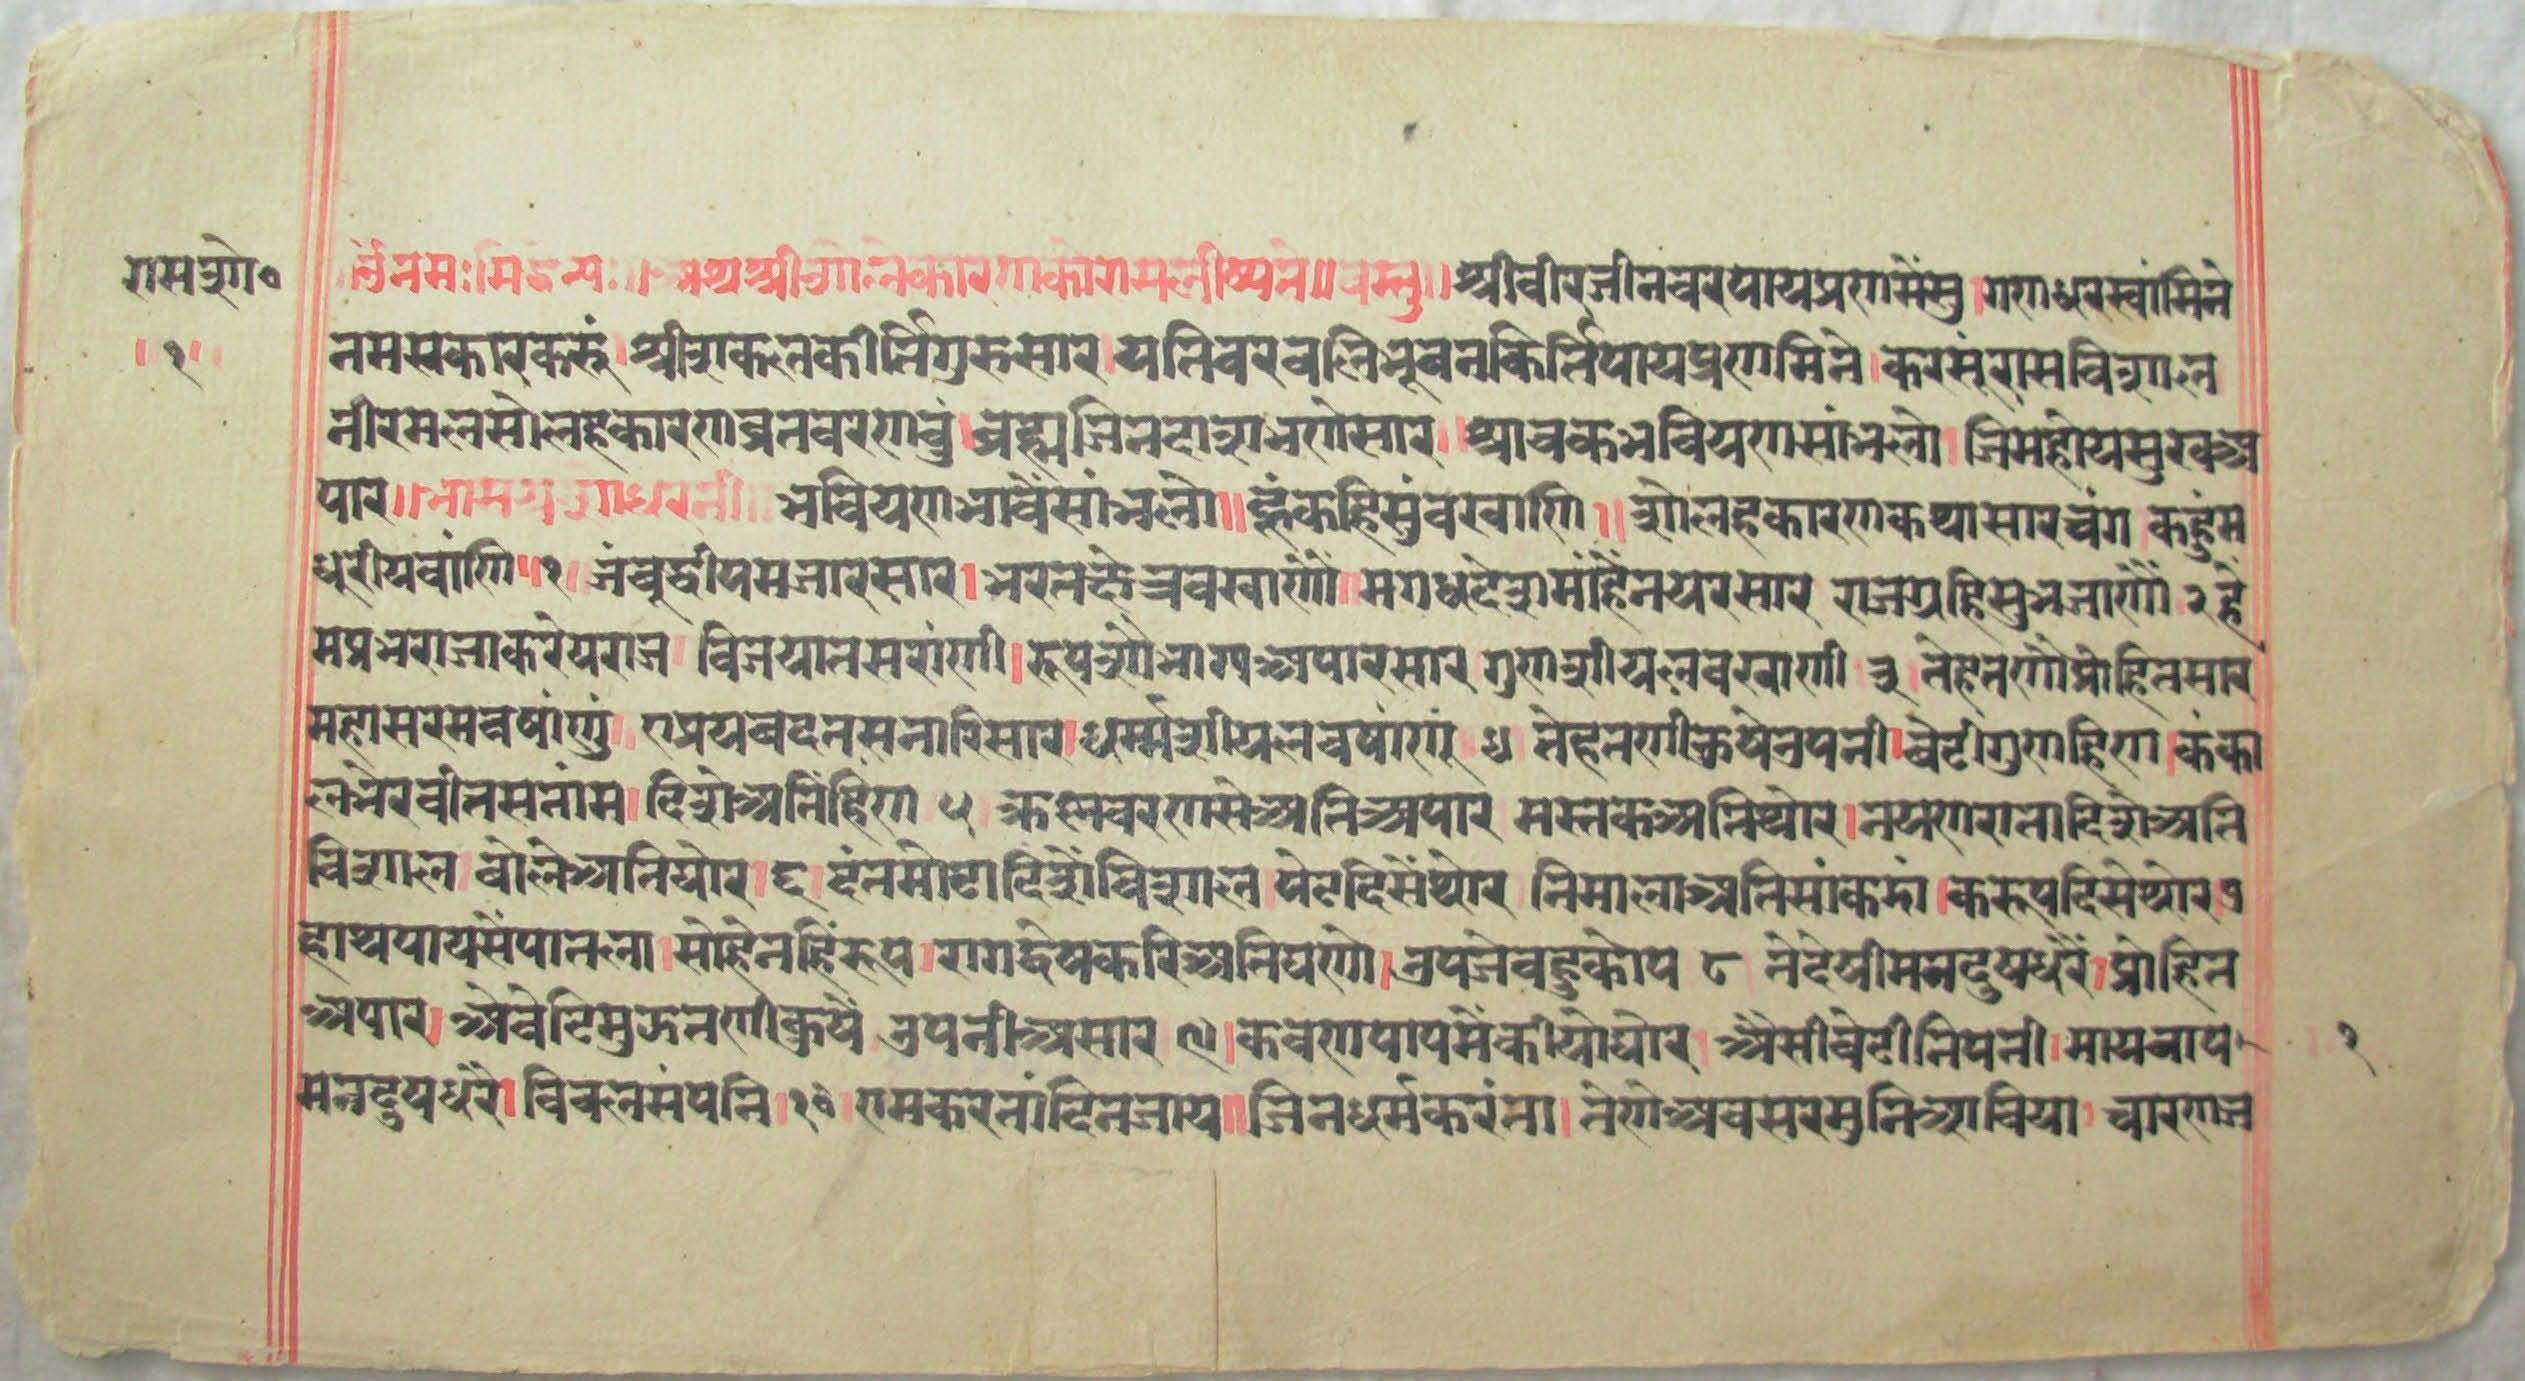 रासशो०
॥१॥
श्रीवीरजीनवरपायप्रणमेसु।गणधरस्वांमिने
नमसकारकरूं।श्रीशकलकीर्तिगुरुसार।यतिवरवलिभूवनकिर्तिपायप्रणमिने।करसूंरासविशाल
नीरमलसोलहकारणव्रतवरणवुं।ब्रह्मजिनदाशभणेसार।श्रावकभवियणसांभलो।जिमहोयसुखअ
पार॥भासजशोधरनी॥भवियणभावेंसांभलो॥हूंकहिसुंवखाणि॥शोलहकारणकथासारचंग कहुंम
धुरीयवांणि॥१॥जंबूद्वीपमजारसार।भरतक्षेत्रवखाणों॥मगधदेशमांहेंनयरसार राजग्रहिसुभजाणों २ हे
मप्रभराजाकरेयराज॥विजयातसरांणी।रूपशोभाग्यअपारसार गुणशीयलवखाणी ३ तेहतणोप्रोहितसार
महासरमवषांणुं॥प्रयवदनसनारिसार।धर्म्मशीयलवषांणूं ४ तेहतणीकुषेउपनी।बेटीगुणहिण।कंका
लभेरवीतसनांम।दिशेअतिंहिंण ५ क्रस्नवरणसेअतिअपार मस्तकअतिथोर।नयणरातादिशेअति
विशाल वोलेअतिघोर।६।दंतमोटादिशेंविशाल पेटदिसेंथोर निमालाअतिसांकमां।करूपदिसेथोर७
हाथपायसेंपातला।सोहेनहिंरूप।रागद्वेषकरिअतिघणो।उपजेबहुकोप ८ तेदेषीमनदुषधरें।प्रोहित
अपार।अेबेटिमुऊतणीकुषें उपनीअसार ९।कवणपापमेंकीयोघोर अेसीबेटीनिपनी।मायबाप
१
मनदुषधरे।विकलसंपनि।१०।एमकरतांदिनजाय॥जिनधर्मकरंता।तेणेअवसरमुनिआविया।चारणज